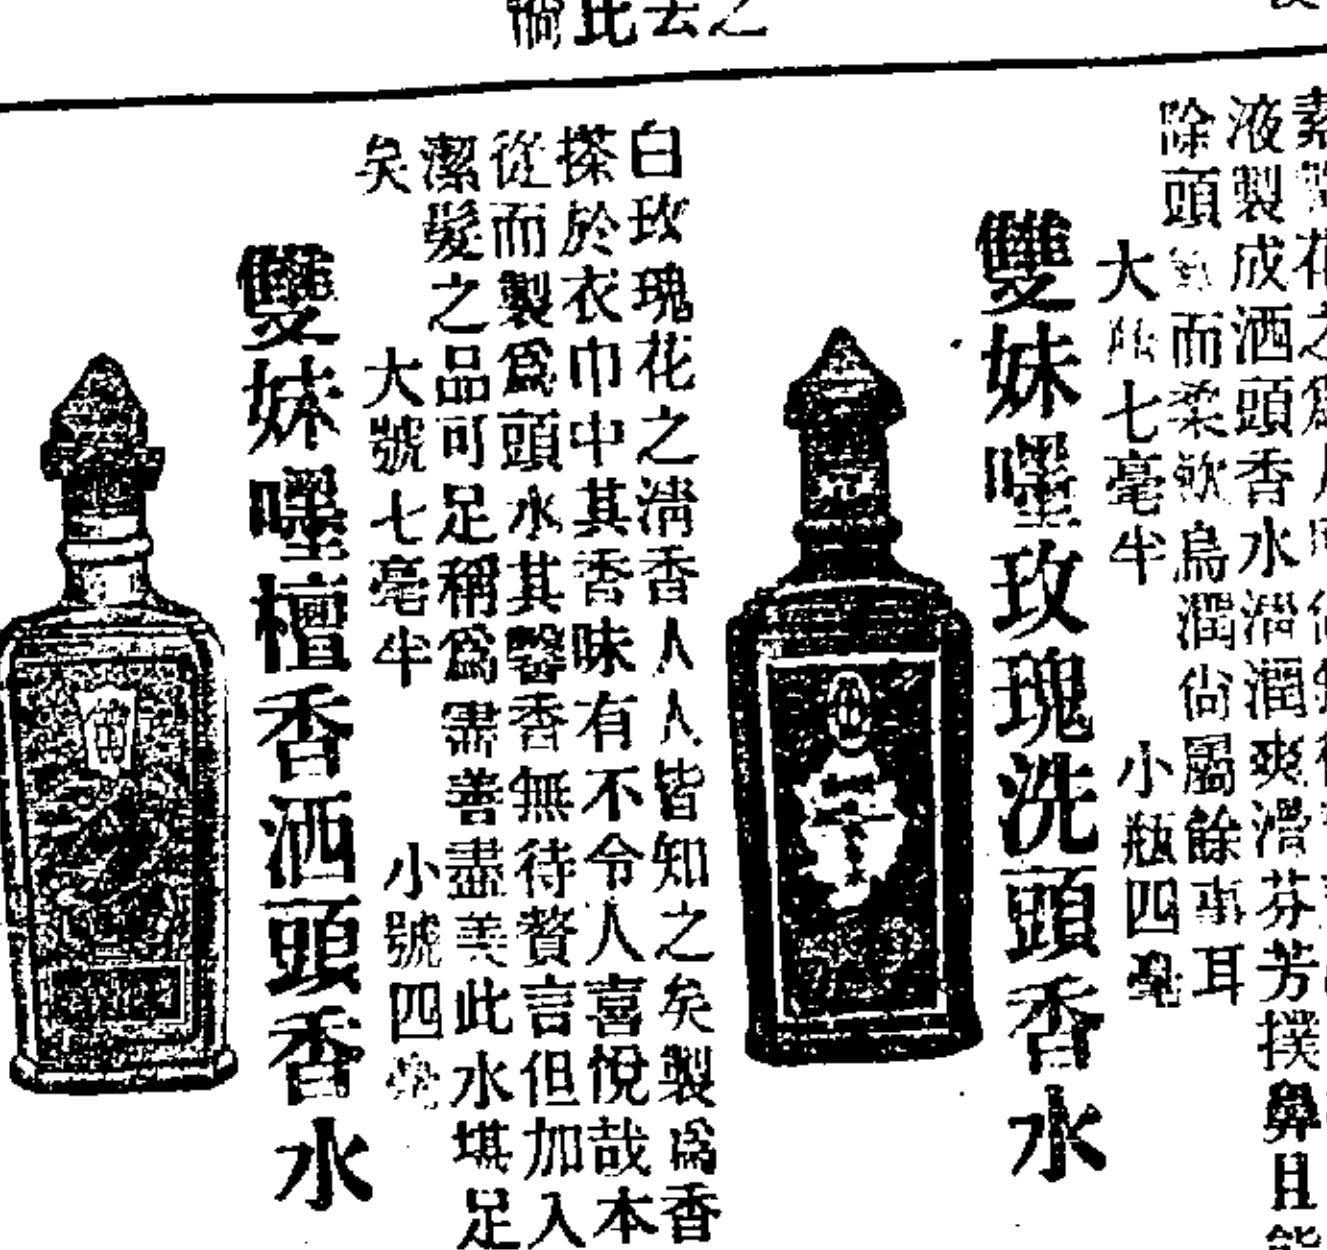 液製成洒頭香水滑潤爽滑芬芳撲鼻且能
除頭而柔軟烏潤尙屬餘事耳
大瓶七毫半 小瓶四毫
雙妹嚜玫瑰洗頭香水
白玫瑰花之淸香人人皆知之矣製爲香
搽於衣巾中其香味有不令人喜悅哉本
從而製爲頭水其馨香無待贅言但加入
潔髮之品可足稱爲需善盡美此水堪足
矣
大號七毫半 小號四毫
雙妹嚜檀香洒頭香水